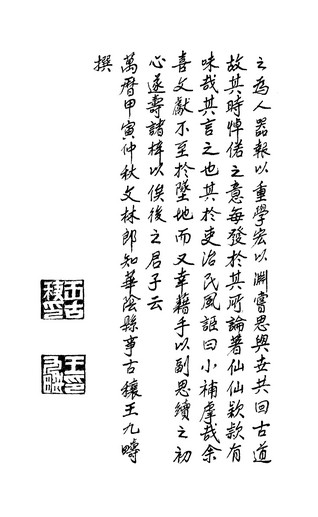 之為人器報以重學宏以淵嘗思與世共回古道
故其時悼偌之意每發於其所論著仙仙款款有
味哉其言之也其於吏治民風詎曰小補虖哉余
喜文獻不至於墜地而又幸藉手以副思續之初
心遂壽諸梓以俟後之君子云
萬曆甲寅仲秋文林郎知華陰縣事古穰王九疇
撰